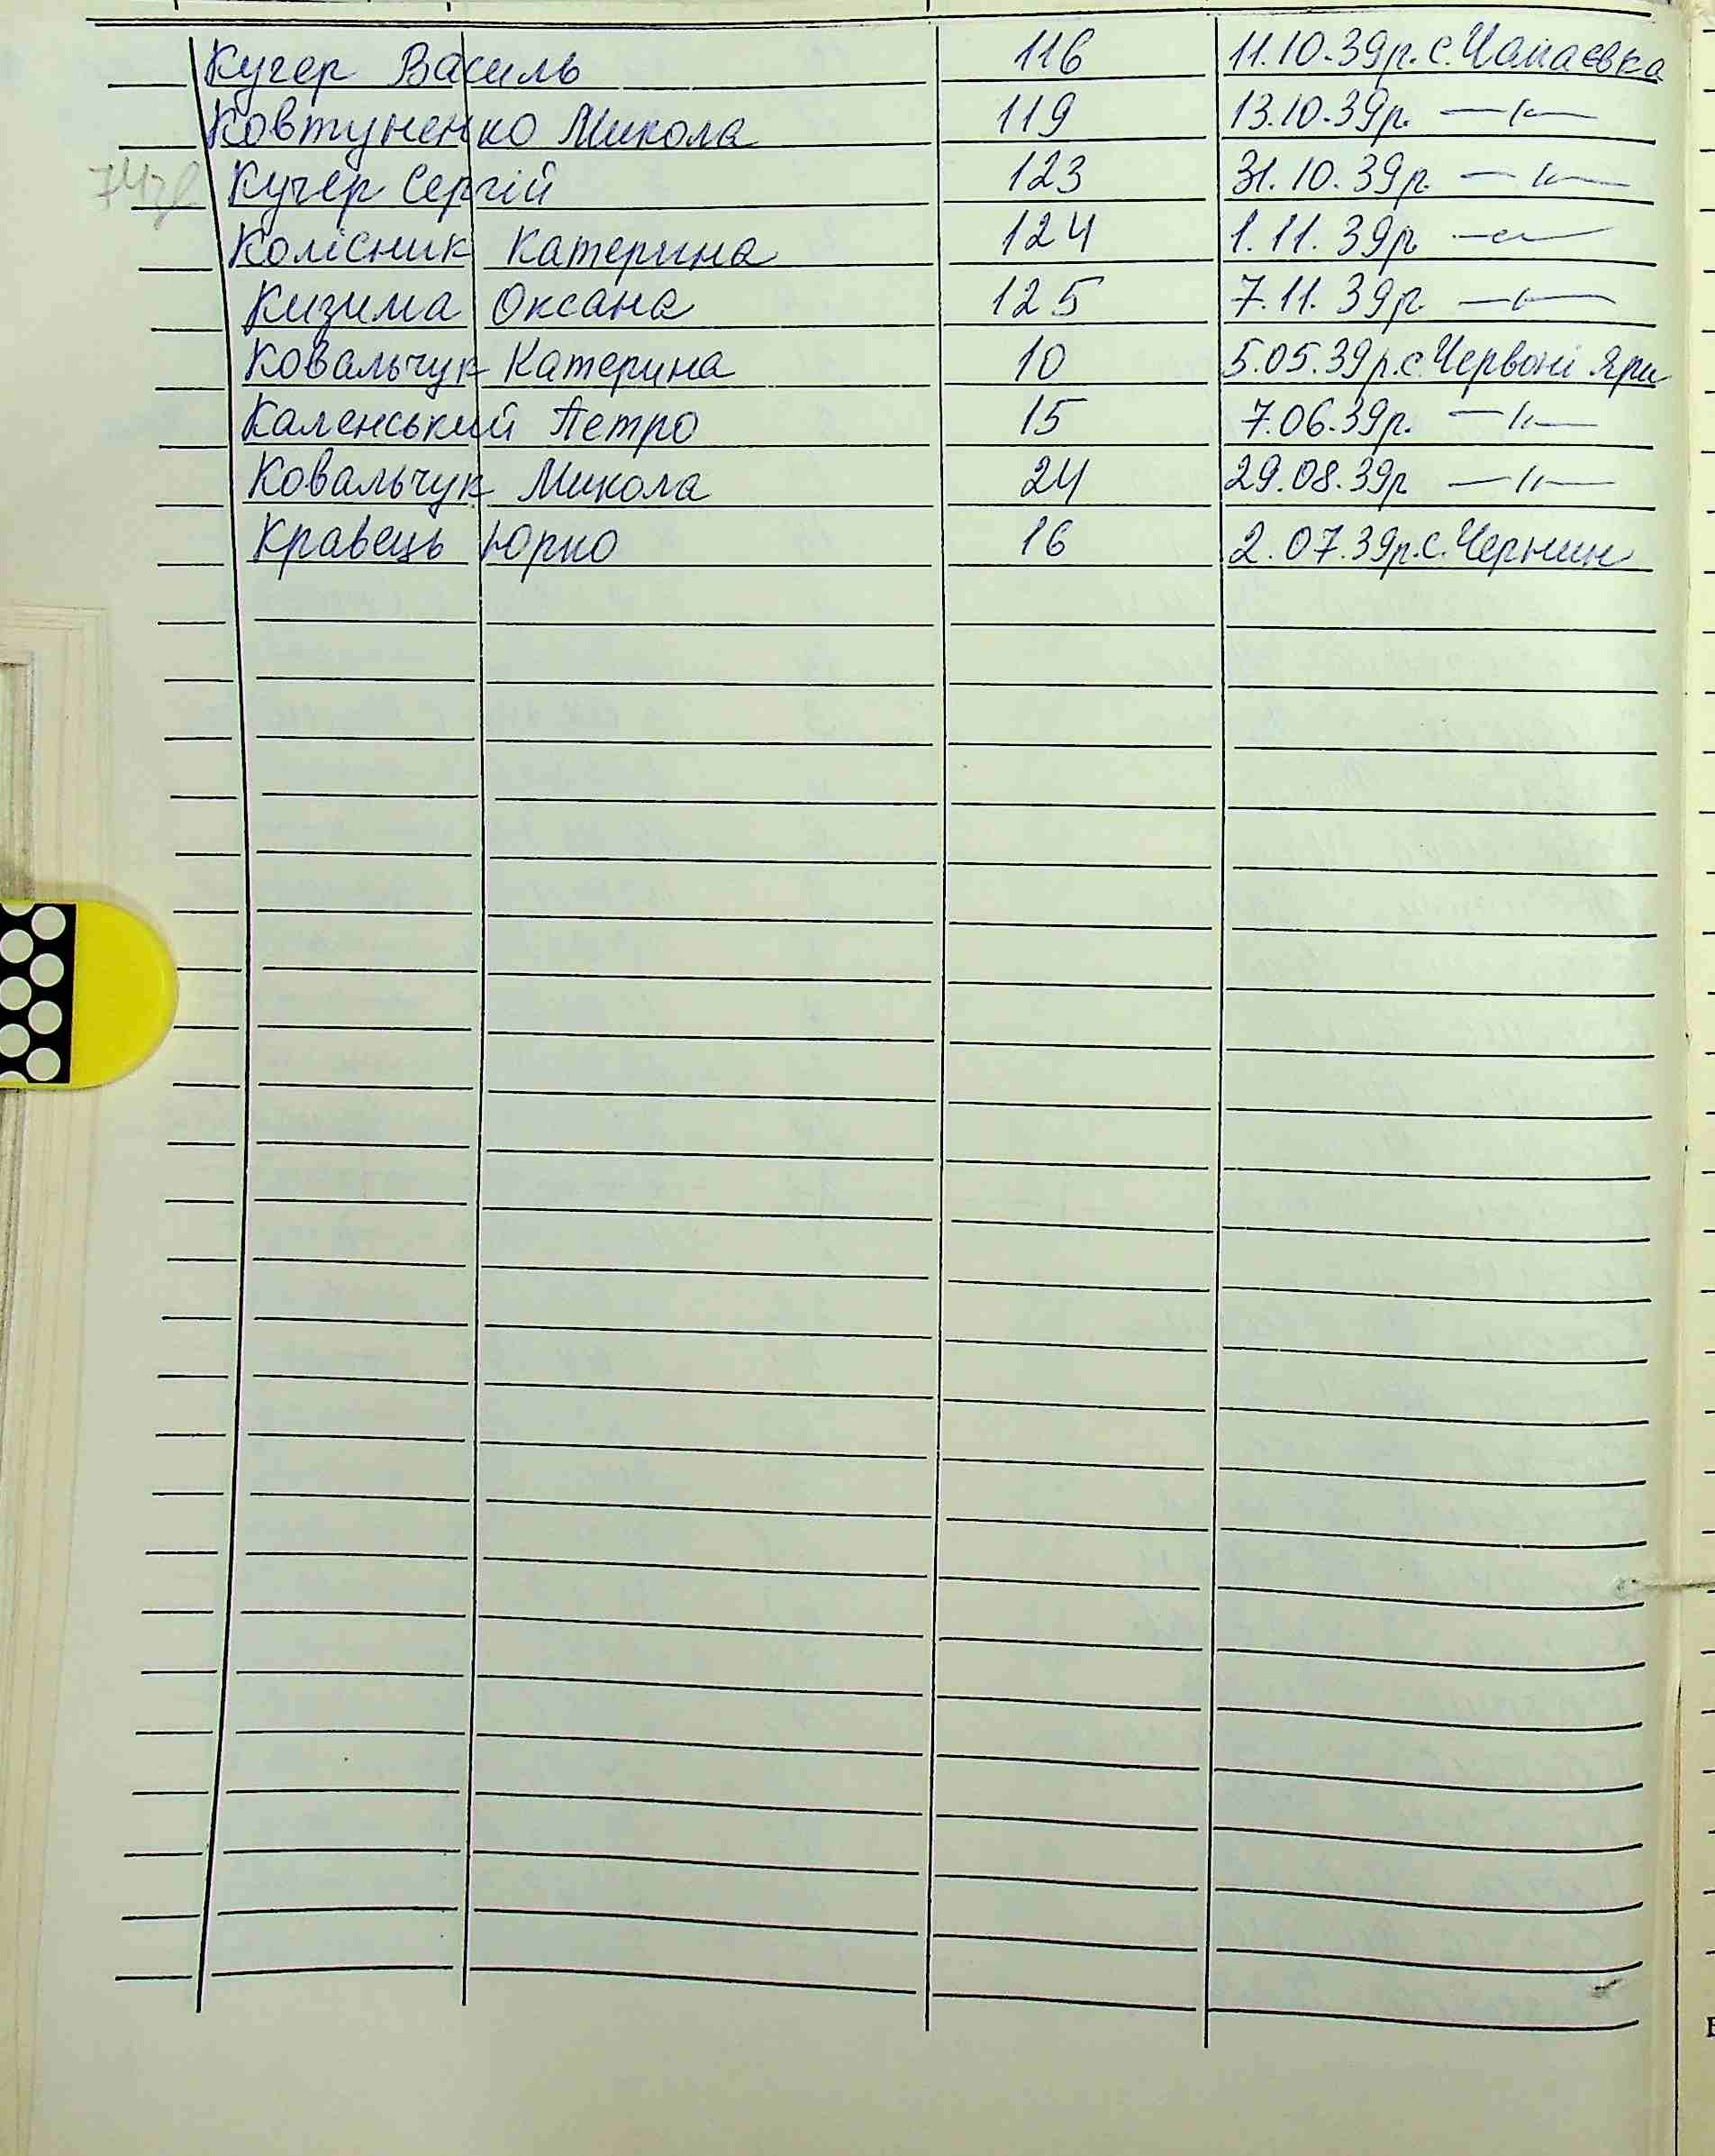 Кучер Василь 116 11.10.39р. с. Чапаєвка
Ковтуненко Микола 119 13.10.39р. —〃—
Кучер Сергій 123 31.10.39р. —〃—
Колісник Катерина 124 1.11.39р —〃—
Кизима Оксана 125 7.11.39р. —〃—
Ковальчук Катерина 10 5.05.39р. с. Червоні Яри
Каленський Петро 15 7.06.39р. —〃—
Ковальчук Микола 24 29.08.39р —〃—
Кравець Юрко 16 2.07.39р. с. Чернин